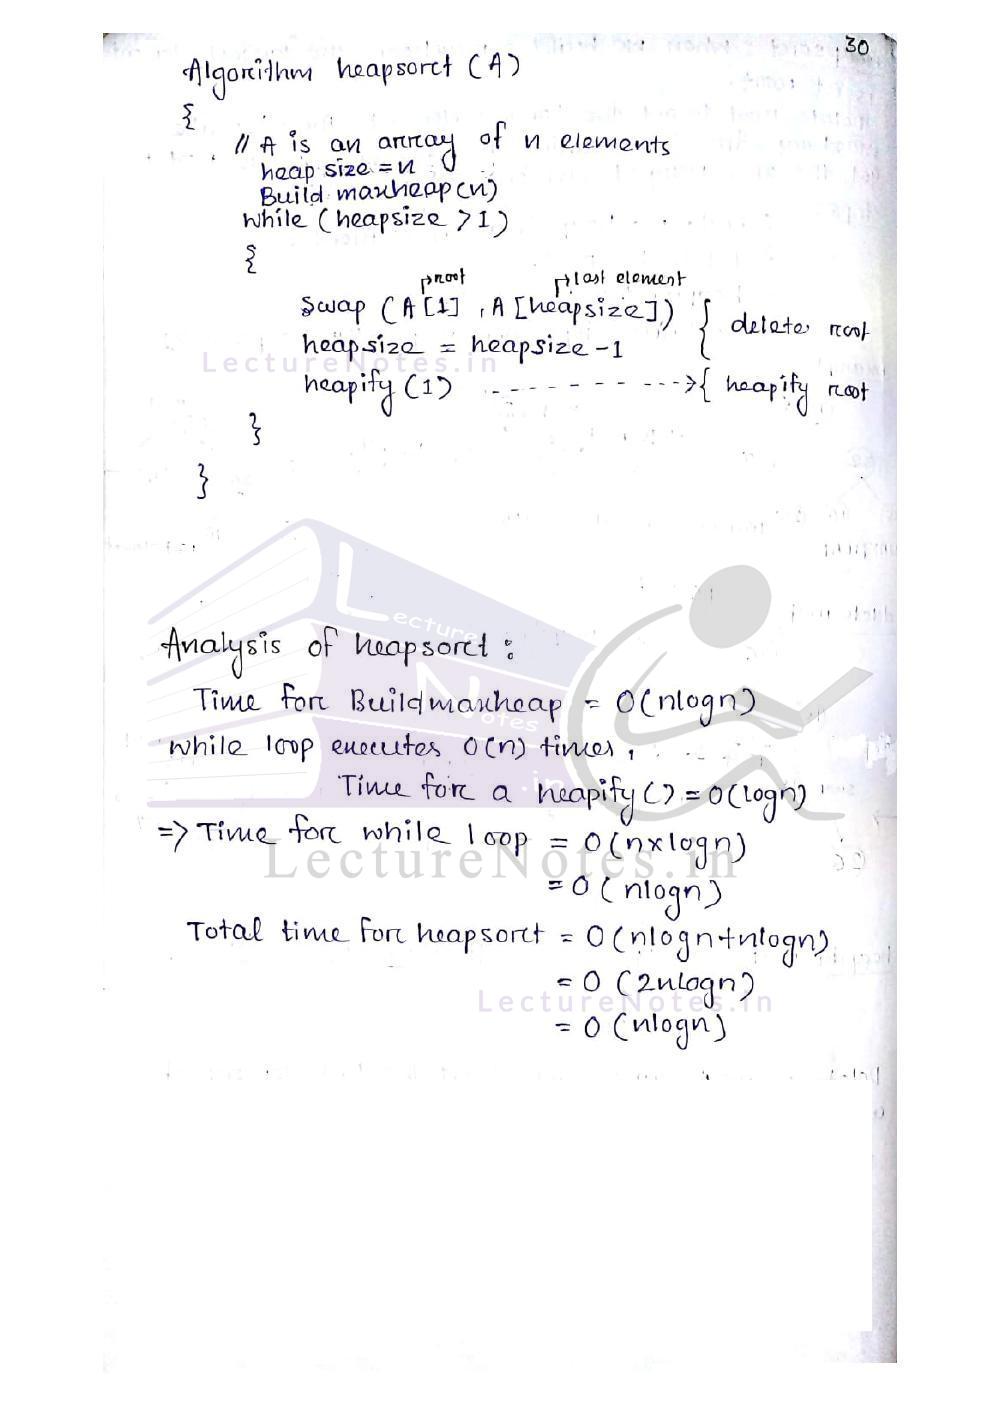 30
Algorithm heapsort (A)
{
// A is an array of n elements
heap size = n
Build maxheap (n)
while (heapsize > 1)
{
root last element
Swap (A [1] , A [heapsize]) { delete root
heapsize = heapsize - 1
LectureNotes.in
heapify (1) - - - - - - - - - -> { heapify root
}
}
Lecture
Notes
.in
Analysis of heapsort :
Time for Buildmaxheap = O(nlogn)
while loop executes O(n) times,
Time for a heapify () = O(logn)
=> Time for while loop = O(n×logn)
LectureNotes.in
= O(nlogn)
Total time for heapsort = O(nlogn+nlogn)
= O (2nlogn)
LectureNotes.in
= O (nlogn)